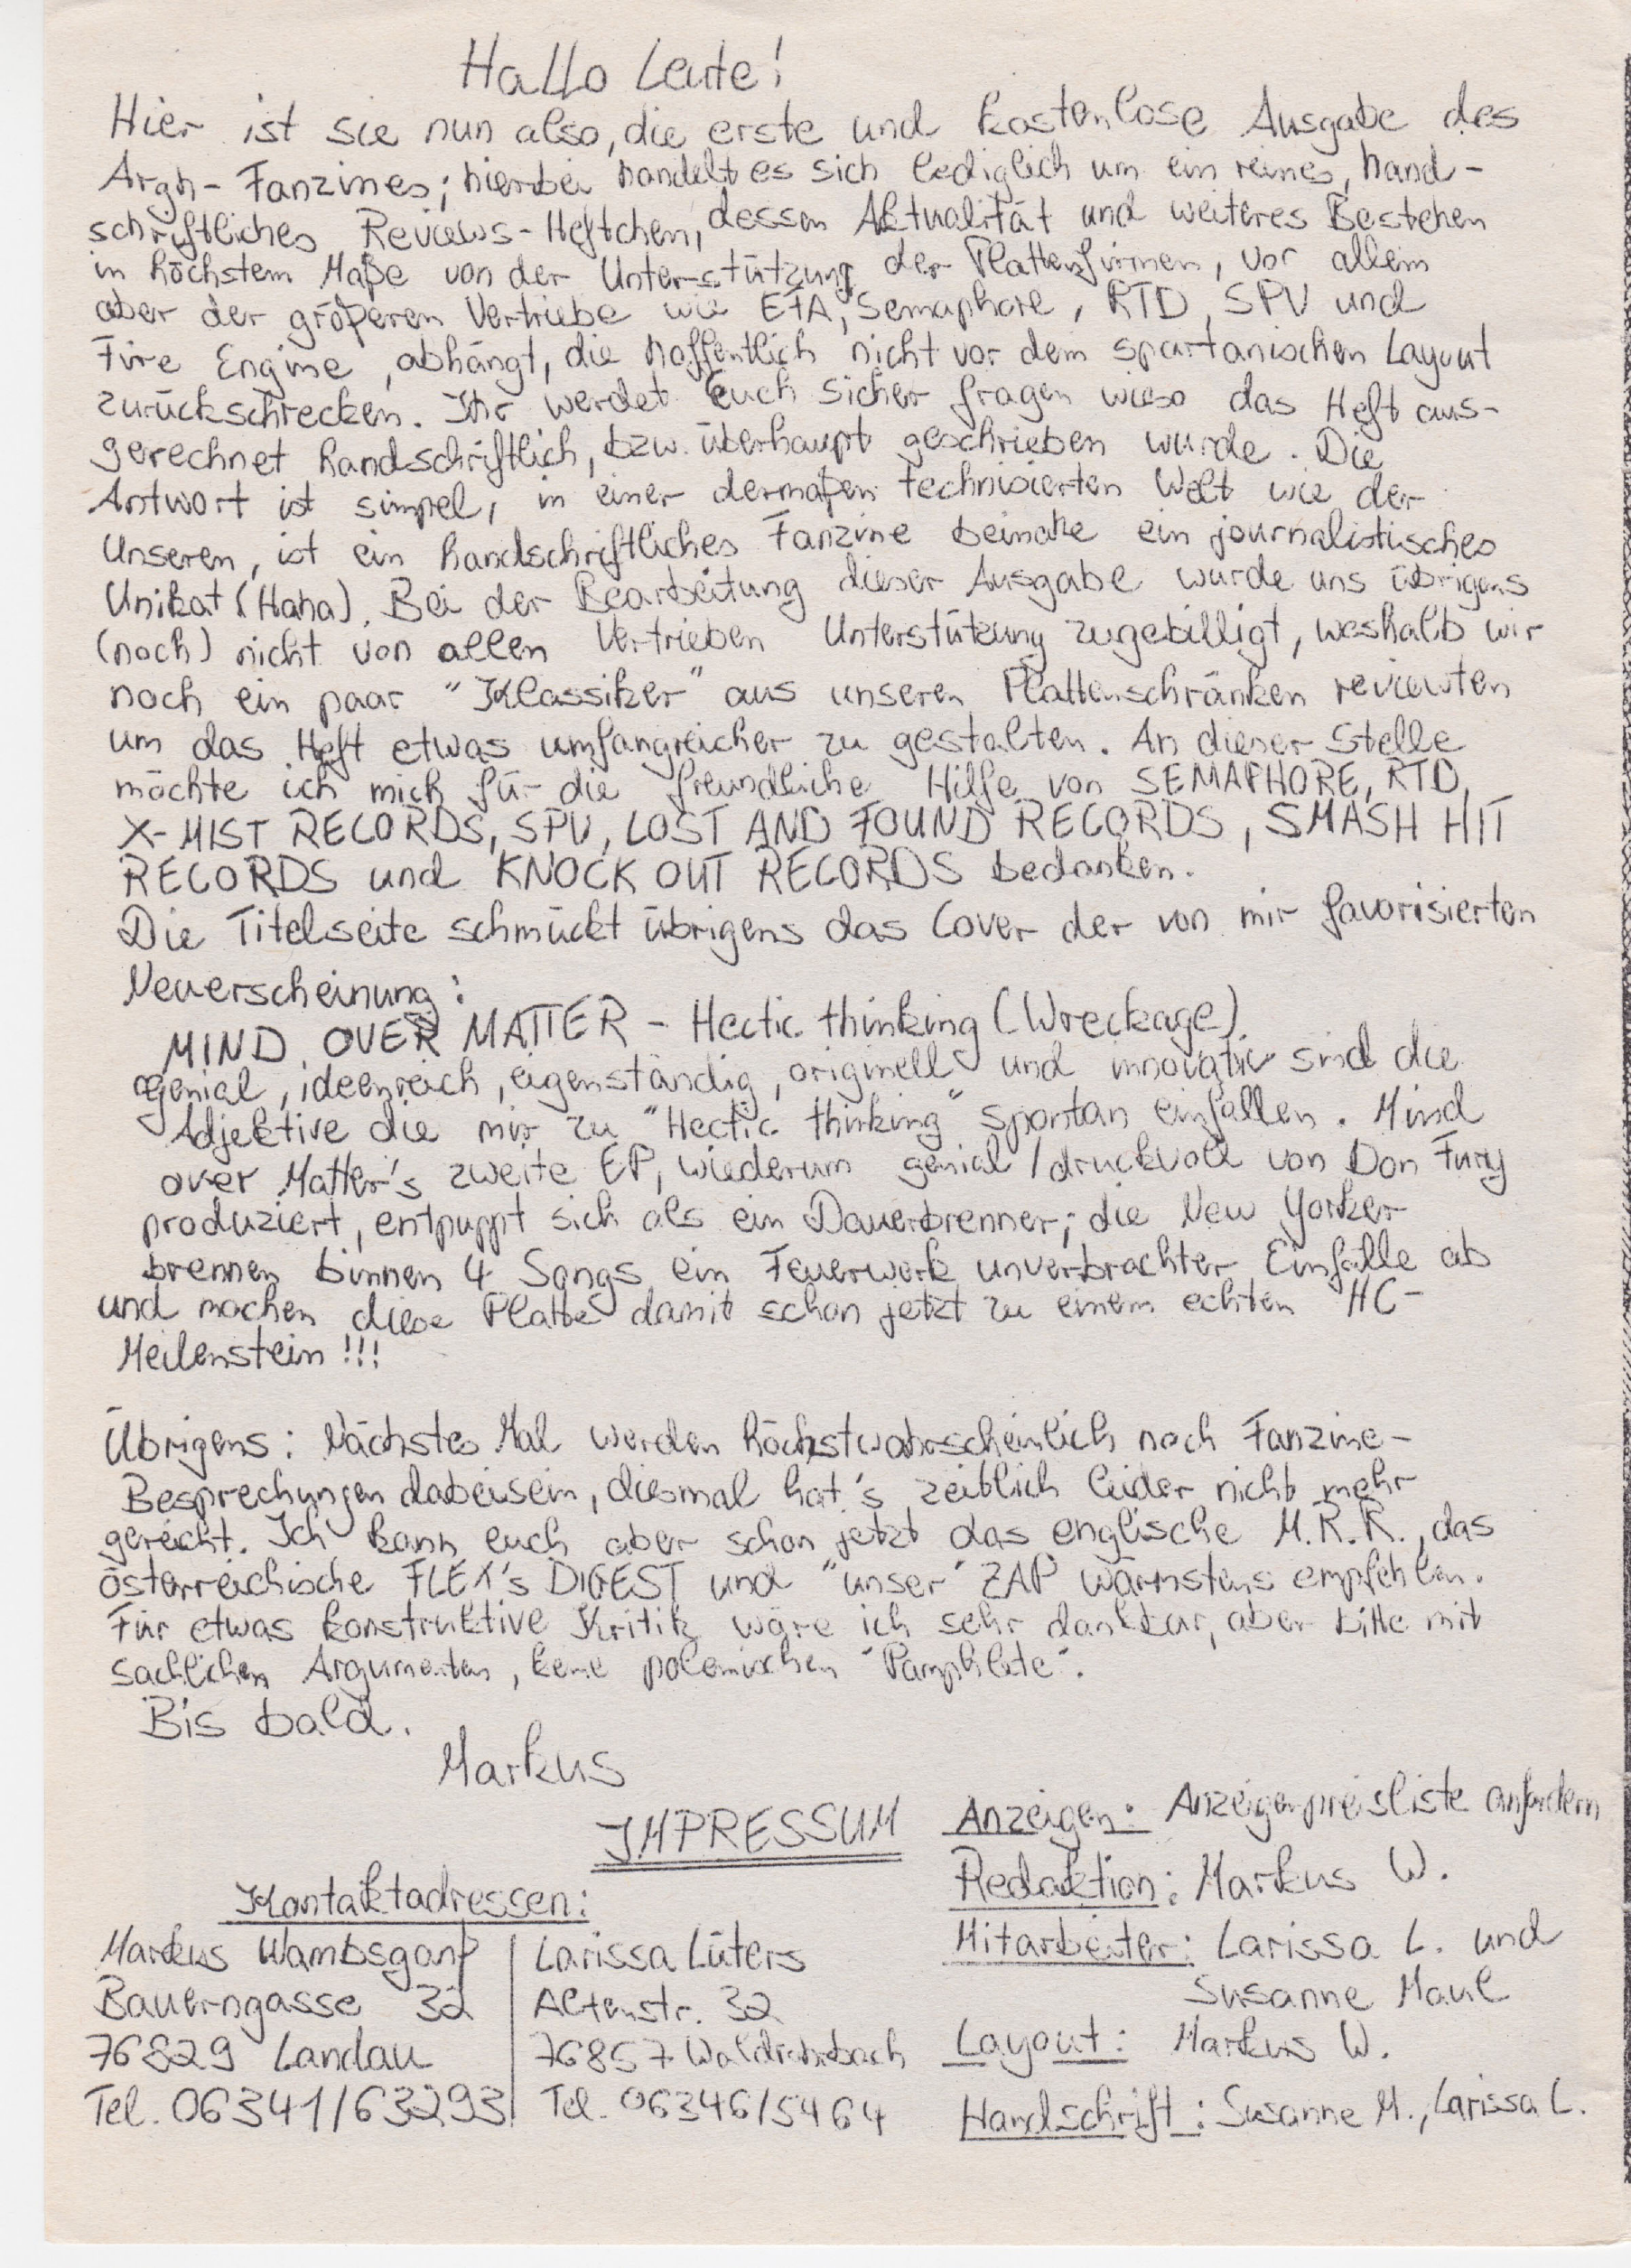 Hallo Leute!
Hier ist sie nun also, die erste und kostenlose Ausgabe des
Argh-Fanzines; hierbei handelt es sich lediglich um ein reines, hand-
schriftliches Reviews-Heftchen, dessen Aktualität und weiteres Bestehen
in höchstem Maße von der Unterstützung der Plattenfirmen, vor allem
aber der größeren Vertriebe wie EfA, Semaphore, RTD, SPV und
Fire Engine, abhängt, die hoffentlich nicht vor dem spartanischen Layout
zurückschrecken. Ihr werdet Euch sicher fragen wieso das Heft aus-
gerechnet handschriftlich, bzw. überhaupt geschrieben wurde. Die
Antwort ist simpel, in einer dermaßen technisierten Welt wie der
Unseren, ist ein handschriftliches Fanzine beinahe ein journalistisches
Unikat (Haha). Bei der Bearbeitung dieser Ausgabe wurde uns übrigens
(noch) nicht von allen Vertrieben Unterstützung zugebilligt, weshalb wir
noch ein paar "Klassiker" aus unseren Plattenschränken reviewten
um das Heft etwas umfangreicher zu gestalten. An dieser Stelle
möchte ich mich für die freundliche Hilfe von SEMAPHORE, RTD,
X-MIST RECORDS, SPV, LOST AND FOUND RECORDS, SMASH HIT
RECORDS und KNOCK OUT RECORDS bedanken.
Die Titelseite schmückt übrigens das Cover der von mir favorisierten
Neuerscheinung:
MIND OVER MATTER - Hectic thinking (Wreckage)
genial, ideenreich, eigenständig, originell und innovativ sind die
Adjektive die mir zu "Hectic thinking" spontan einfallen. Mind
over Matter's zweite EP, wiederum genial/druckvoll von Don Fury
produziert, entpuppt sich als ein Dauerbrenner; die New Yorker
brennen binnen 4 Songs ein Feuerwerk unverbrachter Einfälle ab
und machen diese Platte damit schon jetzt zu einem echten HC-
Meilenstein!!!
Übrigens: Nächstes Mal werden höchstwahrscheinlich noch Fanzine-
Besprechungen dabeisein, diesmal hat's zeitlich leider nicht mehr
gereicht. Ich kann euch aber schon jetzt das englische M.R.R., das
österreichische FLEX's DIGEST und "unser" ZAP wärmstens empfehlen.
Für etwas konstruktive Kritik wäre ich sehr dankbar, aber bitte mit
sachlichen Argumenten, keine polemischen "Pamphlete".
Bis bald.
Markus
IMPRESSUM
Kontaktadressen:
Markus Wambsganß
Bauerngasse 32
76829 Landau
Tel. 06341/63293
Larissa Lüters
Altenstr. 32
76857 Waldrohrbach
Tel. 06346/5464
Anzeigen: Anzeigenpreisliste anfordern
Redaktion: Markus W.
Mitarbeiter: Larissa L. und
Susanne Maul
Layout: Markus W.
Handschrift: Susanne M., Larissa L.